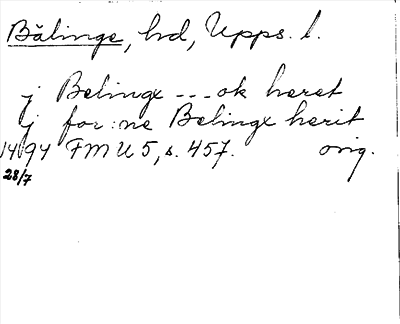 Bälinge, hd, Upps. l.
j Belinge --- ok heret
j for:ne Belinge herit
1494 FMU 5, s. 457. orig.
28/7